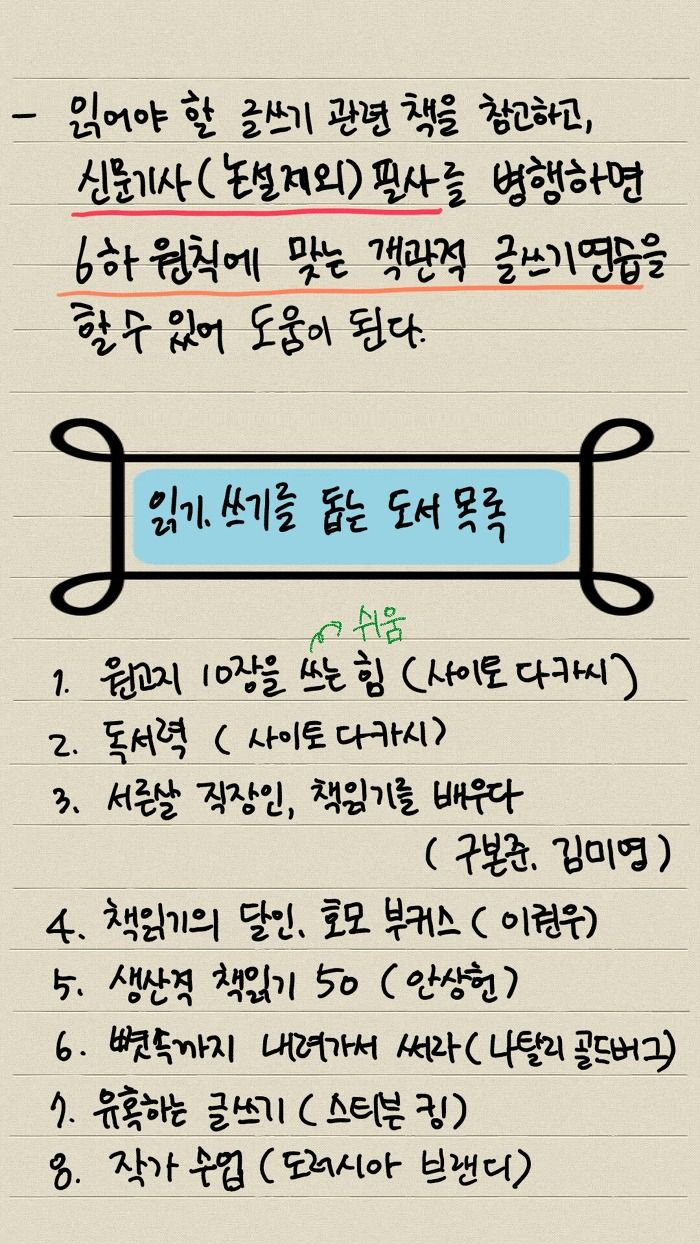 - 읽어야 할 글쓰기 관련 책을 참고하고,
신문기사(논설제외) 필사를 병행하면
6하 원칙에 맞는 객관적 글쓰기연습을
할 수 있어 도움이 된다.
읽기, 쓰기를 돕는 도서 목록
쉬움
1. 원고지 10장을 쓰는 힘 (사이토 다카시)
2. 독서력 (사이토 다카시)
3. 서른살 직장인, 책읽기를 배우다
(구본준, 김미영)
4. 책읽기의 달인, 호모 부커스 (이권우)
5. 생산적 책읽기 50 (안상헌)
6. 뼛속까지 내려가서 써라 (나탈리 골드버그)
7. 유혹하는 글쓰기 (스티븐 킹)
8. 작가 수업 (도러시아 브랜디)